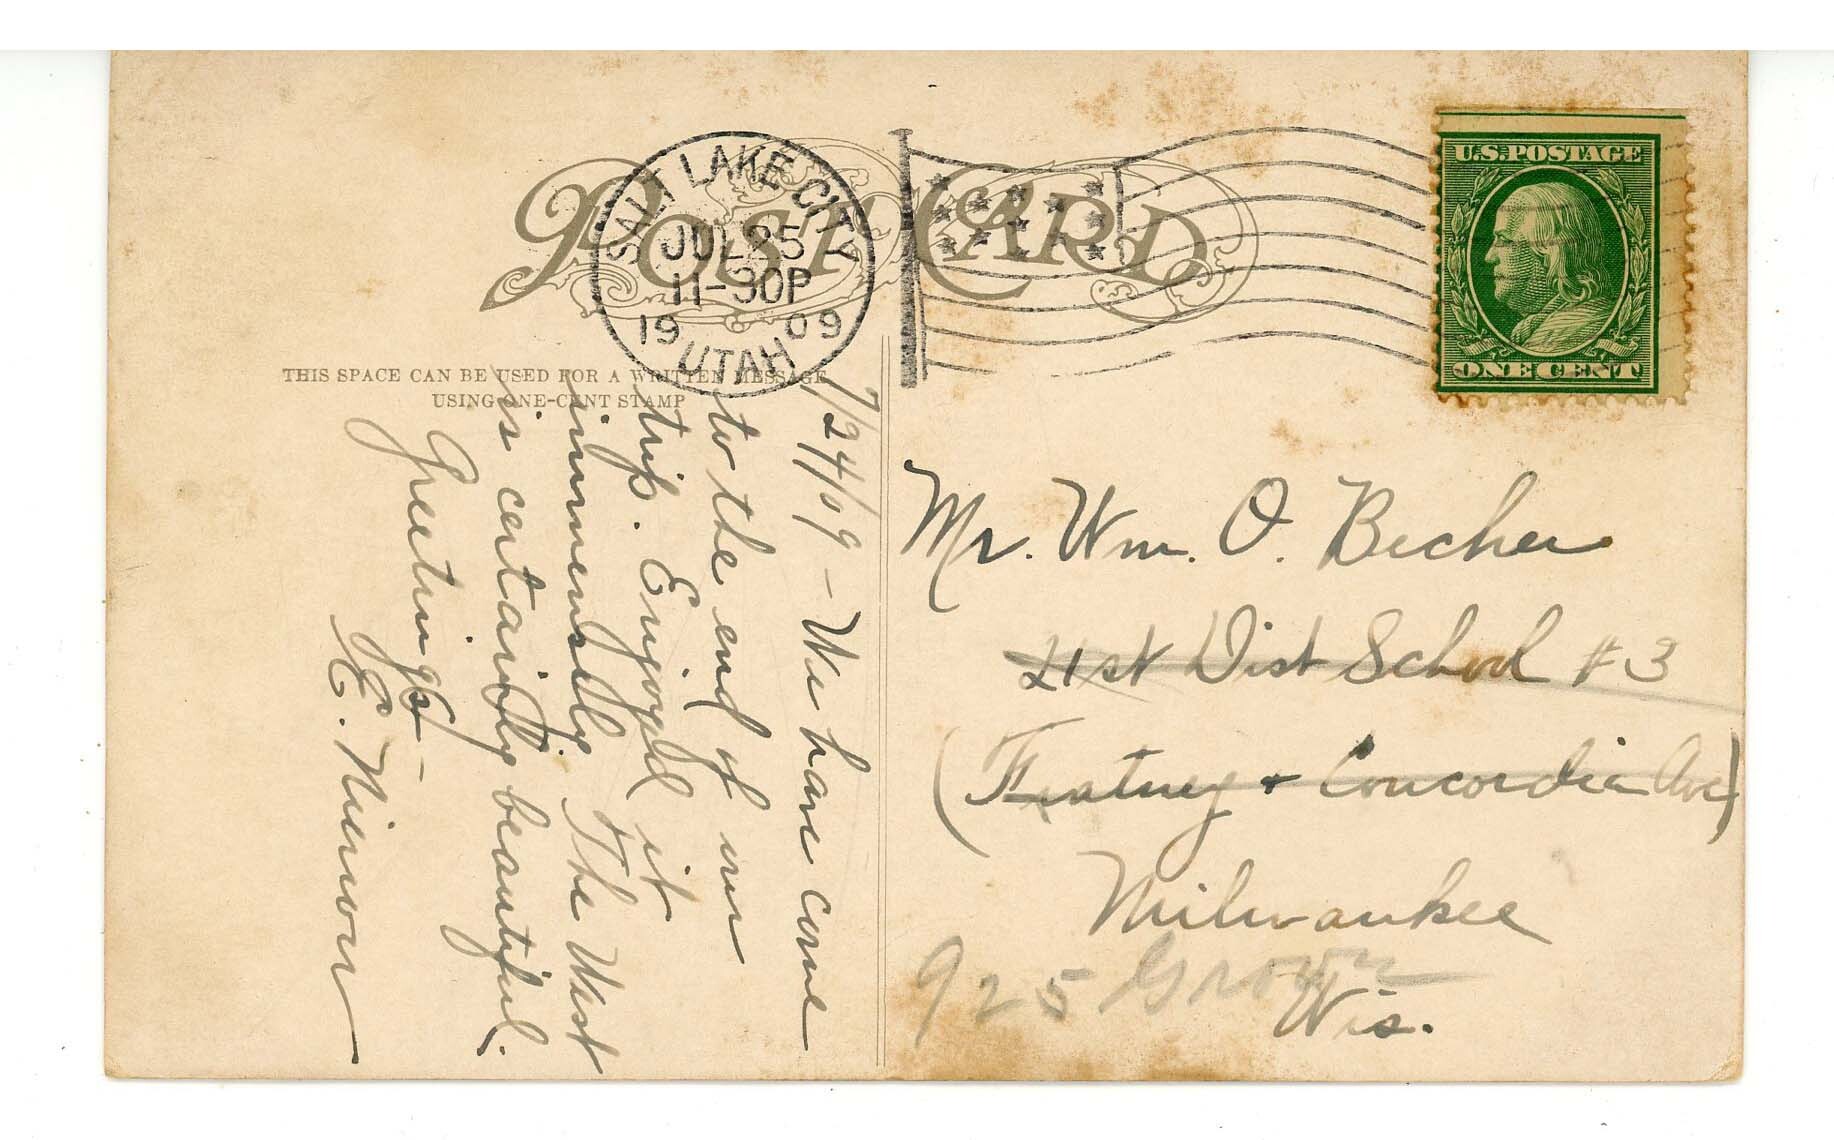 POST CARD
SALT LAKE CITY
JUL 25
11-30P
1909
UTAH
U.S. POSTAGE
ONE CENT
THIS SPACE CAN BE USED FOR A WRITTEN MESSAGE
USING ONE-CENT STAMP
7/24/09 - We have come
to the end of our
trip. Enjoyed it
immensely. The West
is certainly beautiful.
Greetings -
E.
Mr. Wm. O. Becher
21st Dist School #3
(Fratney + Concordia Ave)
Milwaukee
925
Wis.